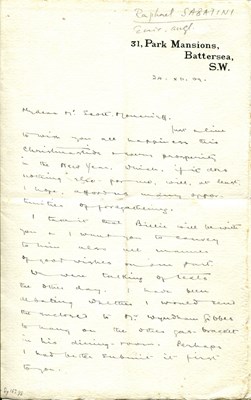 Raphael SABATINI
31, Park Mansions,
Battersea,
S.W.
My dear Mr Scott-Moncrieff,
Just a line
to wish you all happiness this
Christmastide & every prosperity
in the New Year, which, if it does
nothing else for me, will, at least
I hope, afford me many oppor-
tunities of foregathering.
I take it that Billie will be with
you & I want you to convey
to him also all manner
of good wishes on our part.
We were talking of seals
the other day. I have been
debating whether I would send
the enclosed to Mr Wyndham Gibbes
to hang on the other gas-bracket
in his dining-room. Perhaps
I had better submit it first
to you.